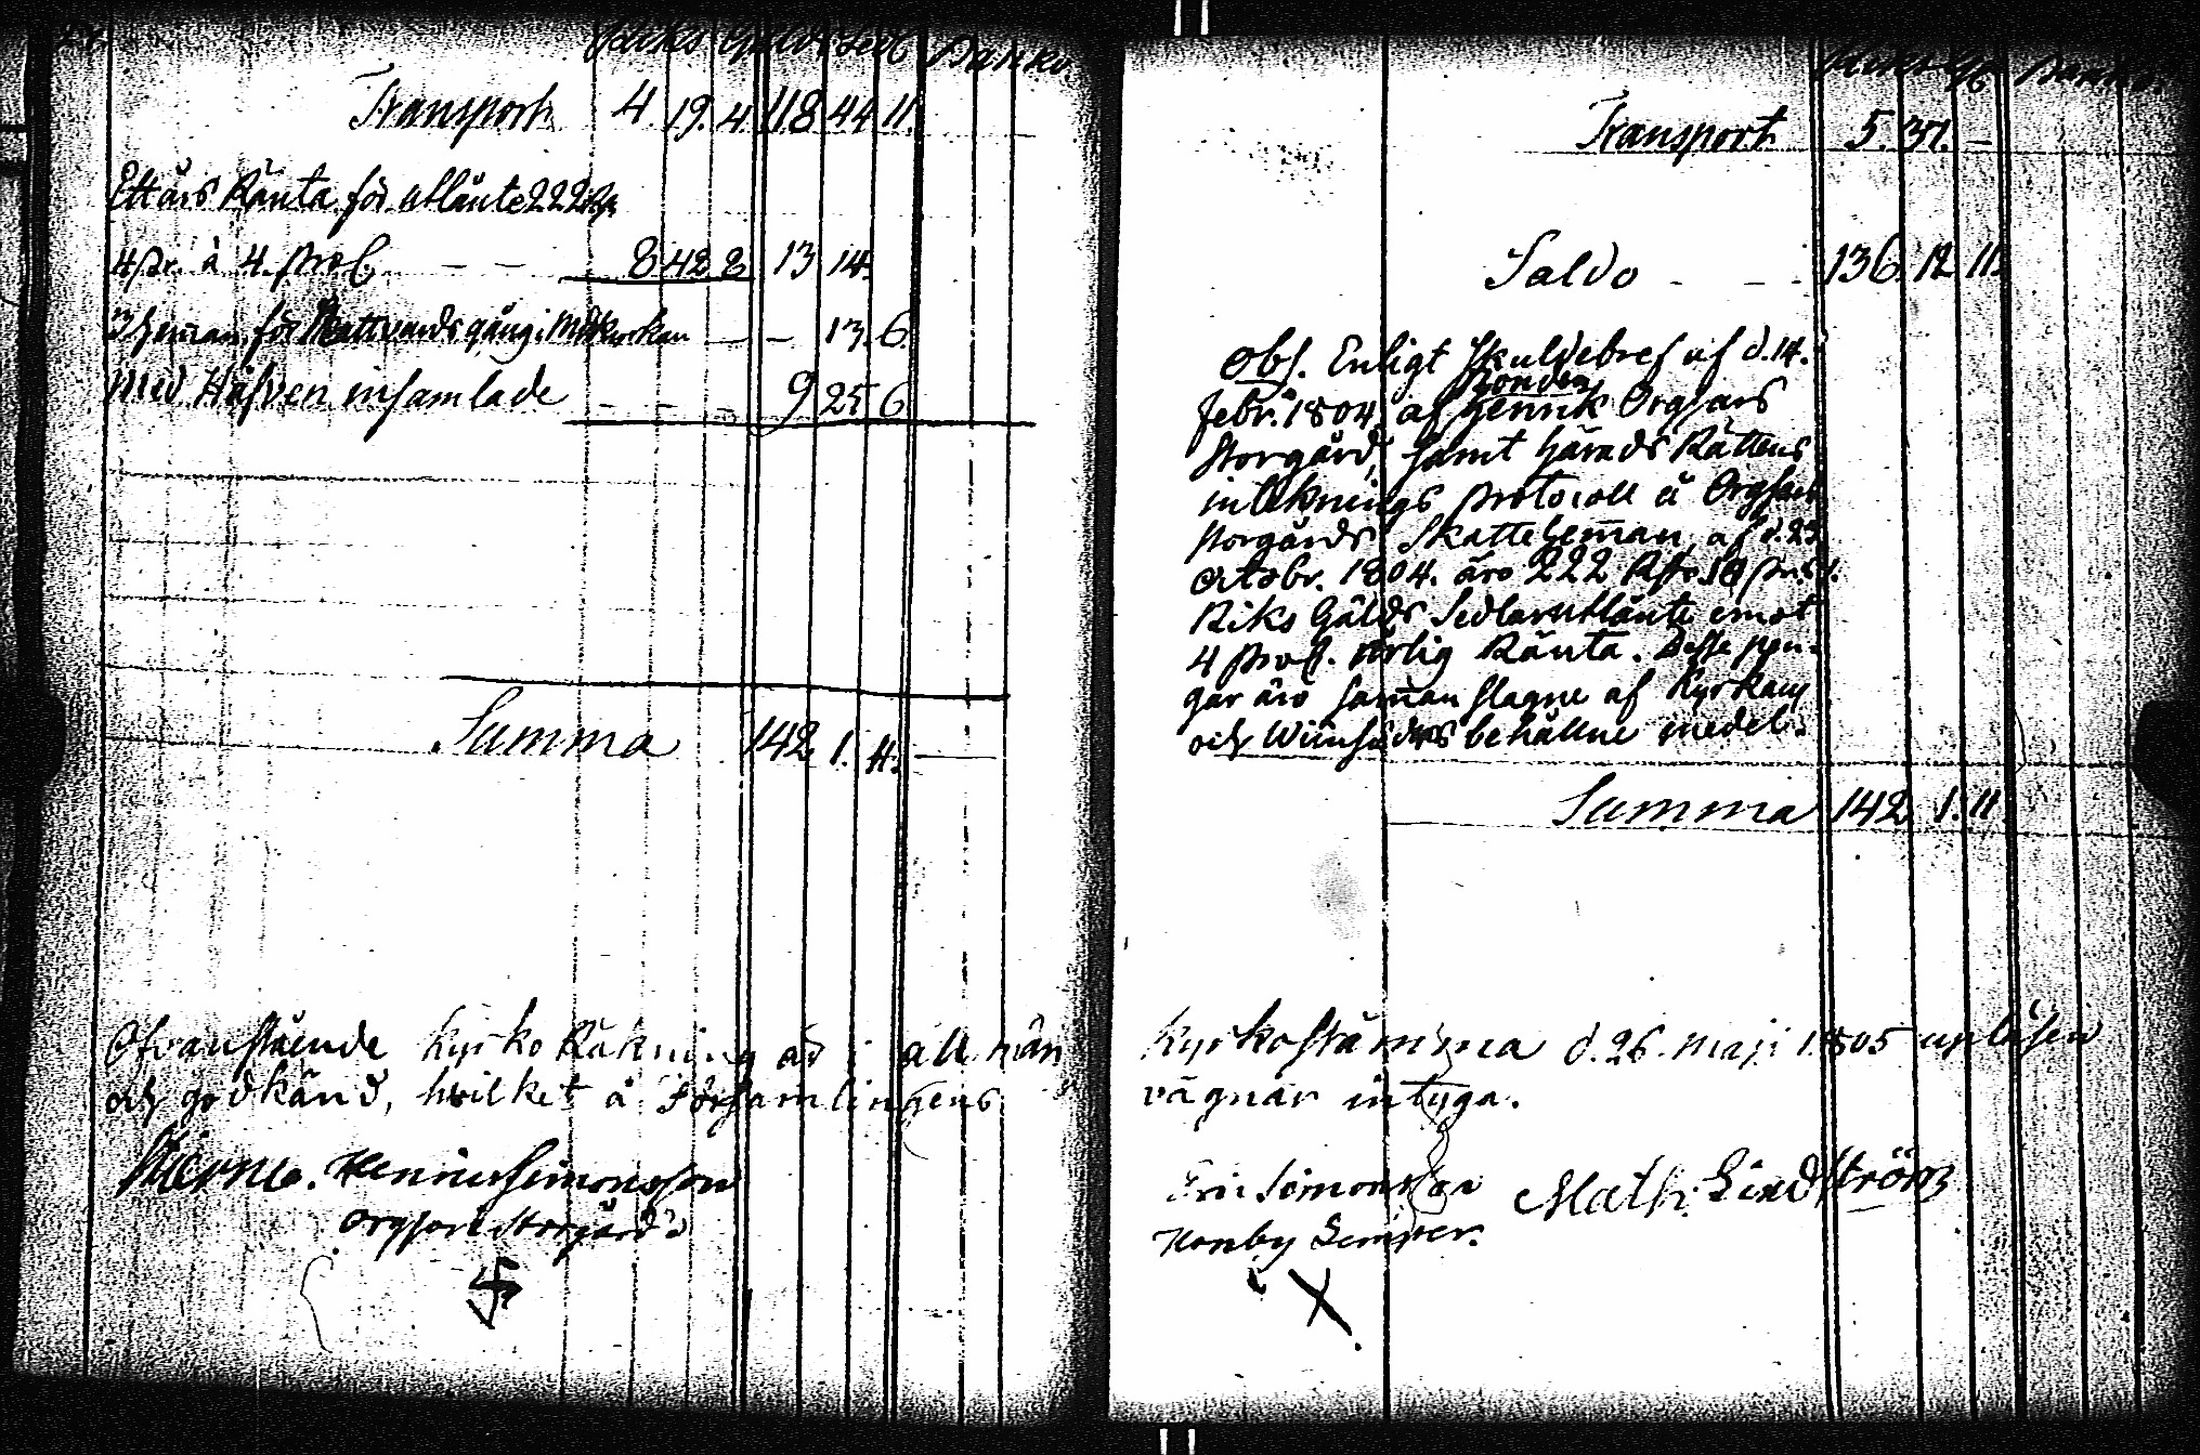 Riks Gälds Sedl Banko.
Transport 4. 19. 4. 118 44 11.
Ett års Ränta för utlånte 222 Rd
4 sz. à 4. proC. — — 8 42 8 13 14.
för Skattvards gång i kyrkan — — 13. 6.
Med Håfven insamlade — — — 9 25 6
Summa 142. 1. 11. —
Ofvanstående kyrko Räkning är i allmän
och godkänd, hvilket å Församlingens
Henric Simonsson
Orgsors Storgård
Riks Gs Banko.
Transport 5. 37. —
Saldo - - - 136. 12 11.
Obs. Enligt Skuldebref af d. 14.
Bonden
febr. 1804. af Henrik Orgsars
Storgård, samt Härads Rättens
inteknings protocoll å Orgsars
Storgårds Skattehemman af d. 23
octobr. 1804. äro 222
Riks Gälds Sedlar utlånte emot
4 proC. årlig Ränta. Desse pen-
gar äro samman slagne af Kyrkans
och behållne medel.
Summa 142 1. 11.
Kyrkostämma d. 26. maji 1805 upläsen
vägnar intyga.
Eric Simonsson Math: Lindström
Konby
X